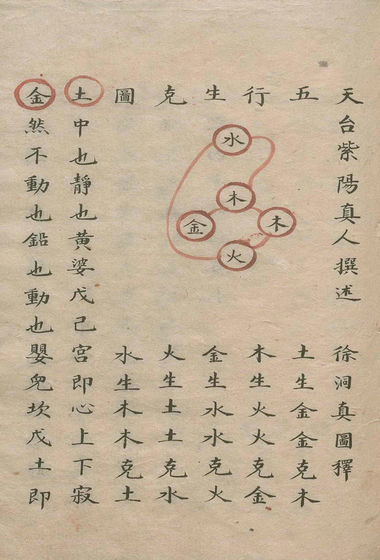 天台紫陽真人撰述 徐洞真圖釋
五行生克圖
水
木
金
木
火
土生金金克木
木生火火克金
金生水水克火
火生土土克水
水生木木克土
土中也靜也黃婆戊己宮即心上下寂
金然不動也鉛也動也嬰兒坎戊土即